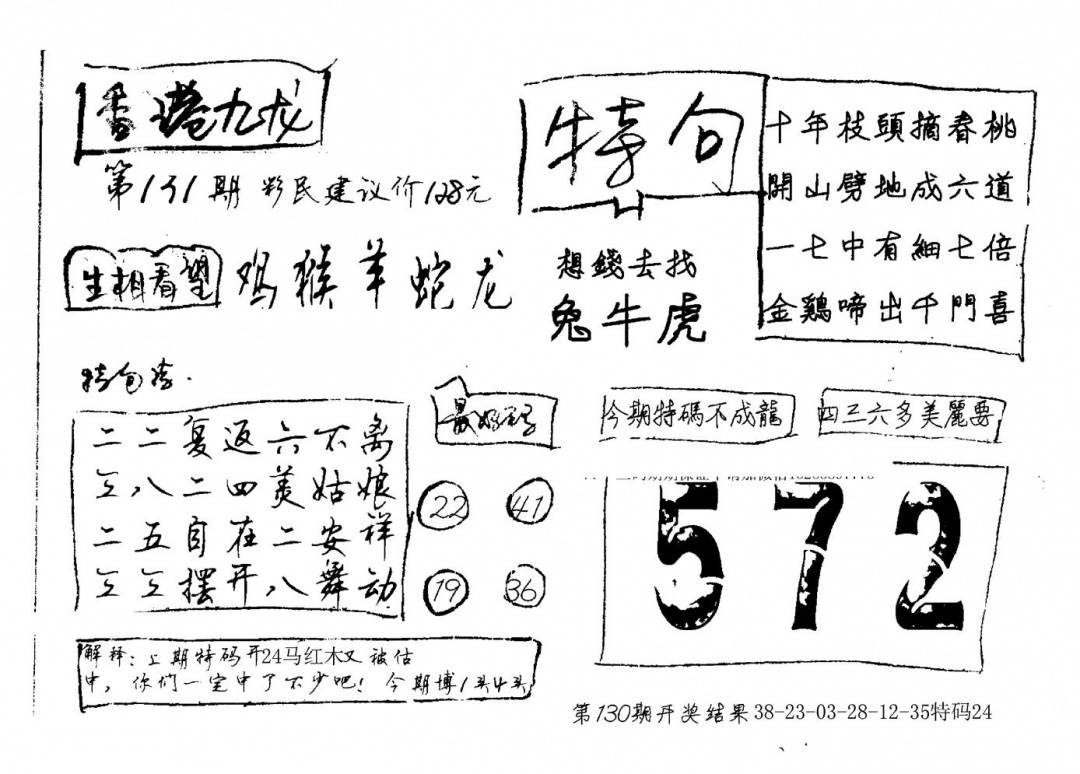 香港九龙
第131期 彩民建议价128元
特句
十年枝頭摘春桃
開山劈地成六道
一七中有細七倍
金鷄啼出千門喜
生相看望
鸡猴羊蛇龙
想錢去找
兔牛虎
特包
二二复返六不离
三八二四美姑娘
二五自在二安祥
三三摆开八舞动
22 41
19 36
今期特碼不成龍
四三六多美麗要
572
解释：上期特码开24马红木又被估
中，你们一定中了不少吧！今期博1头4头
第130期开奖结果 38-23-03-28-12-35特码24